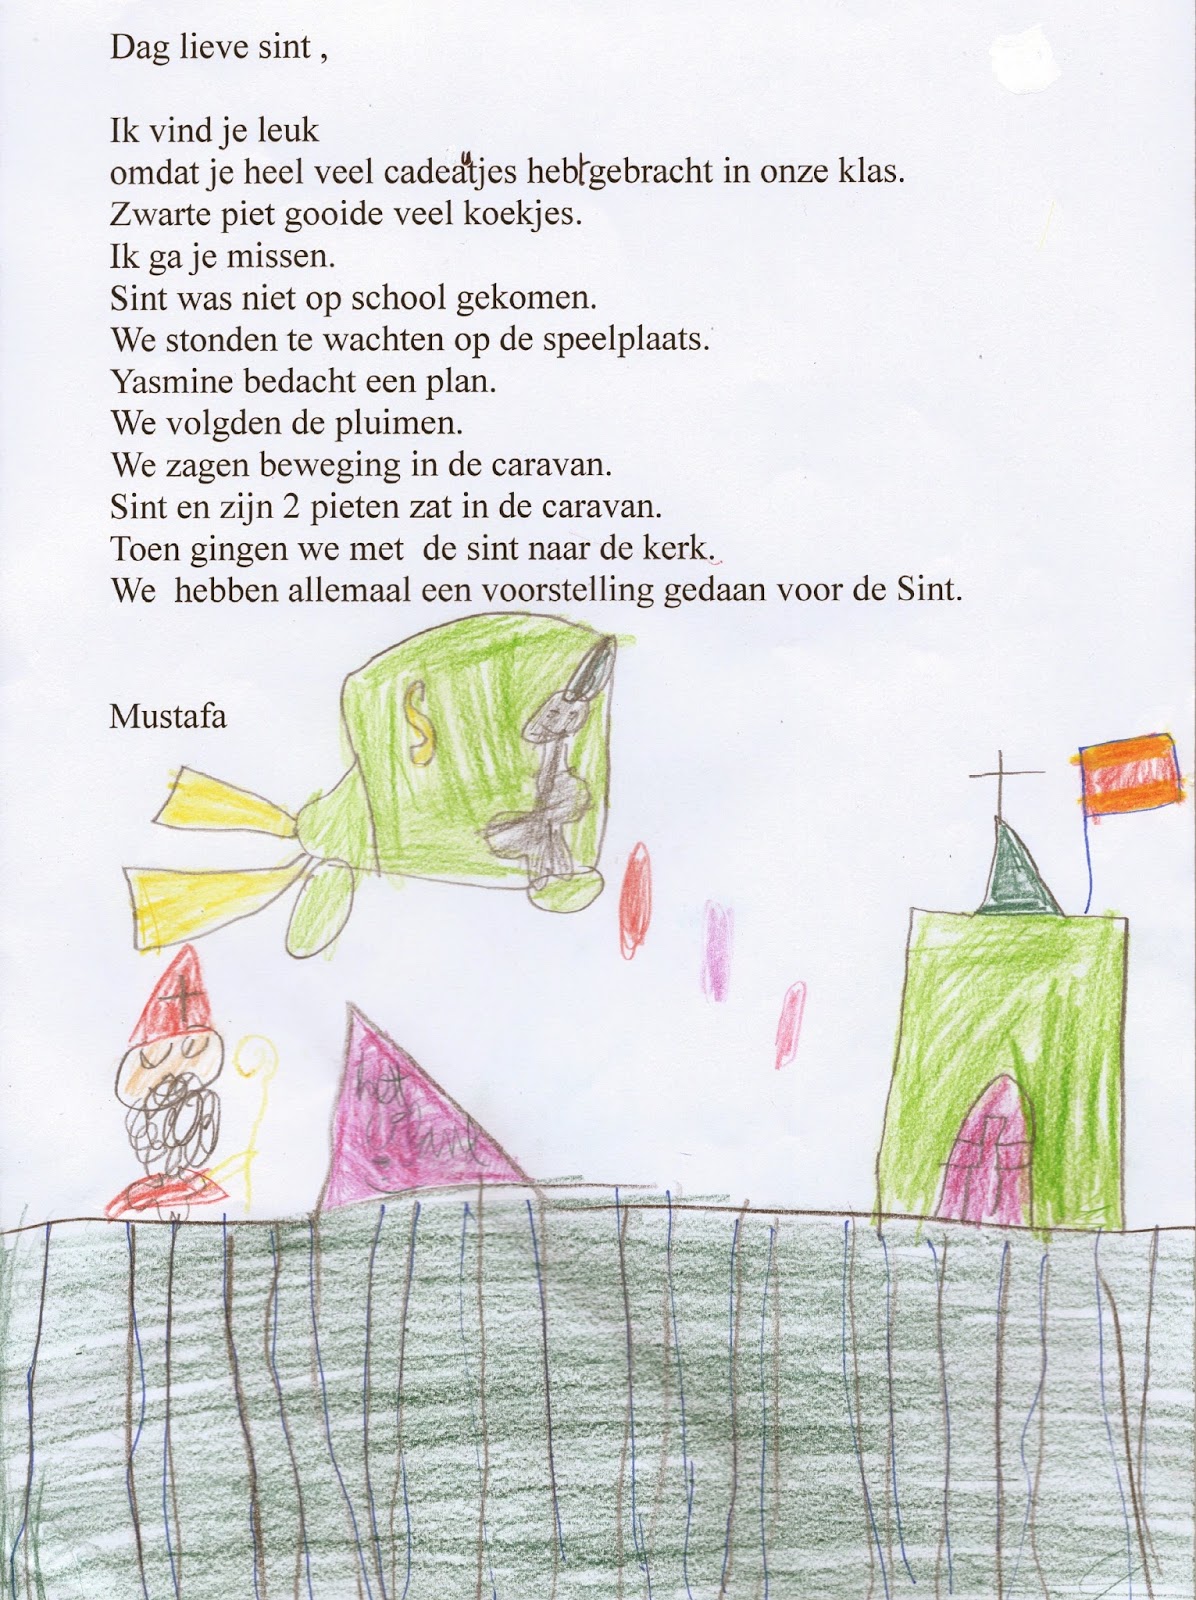 Dag lieve sint ,
Ik vind je leuk
omdat je heel veel cadeautjes hebt gebracht in onze klas.
Zwarte piet gooide veel koekjes.
Ik ga je missen.
Sint was niet op school gekomen.
We stonden te wachten op de speelplaats.
Yasmine bedacht een plan.
We volgden de pluimen.
We zagen beweging in de caravan.
Sint en zijn 2 pieten zat in de caravan.
Toen gingen we met  de sint naar de kerk.
We  hebben allemaal een voorstelling gedaan voor de Sint.
Mustafa
S
het